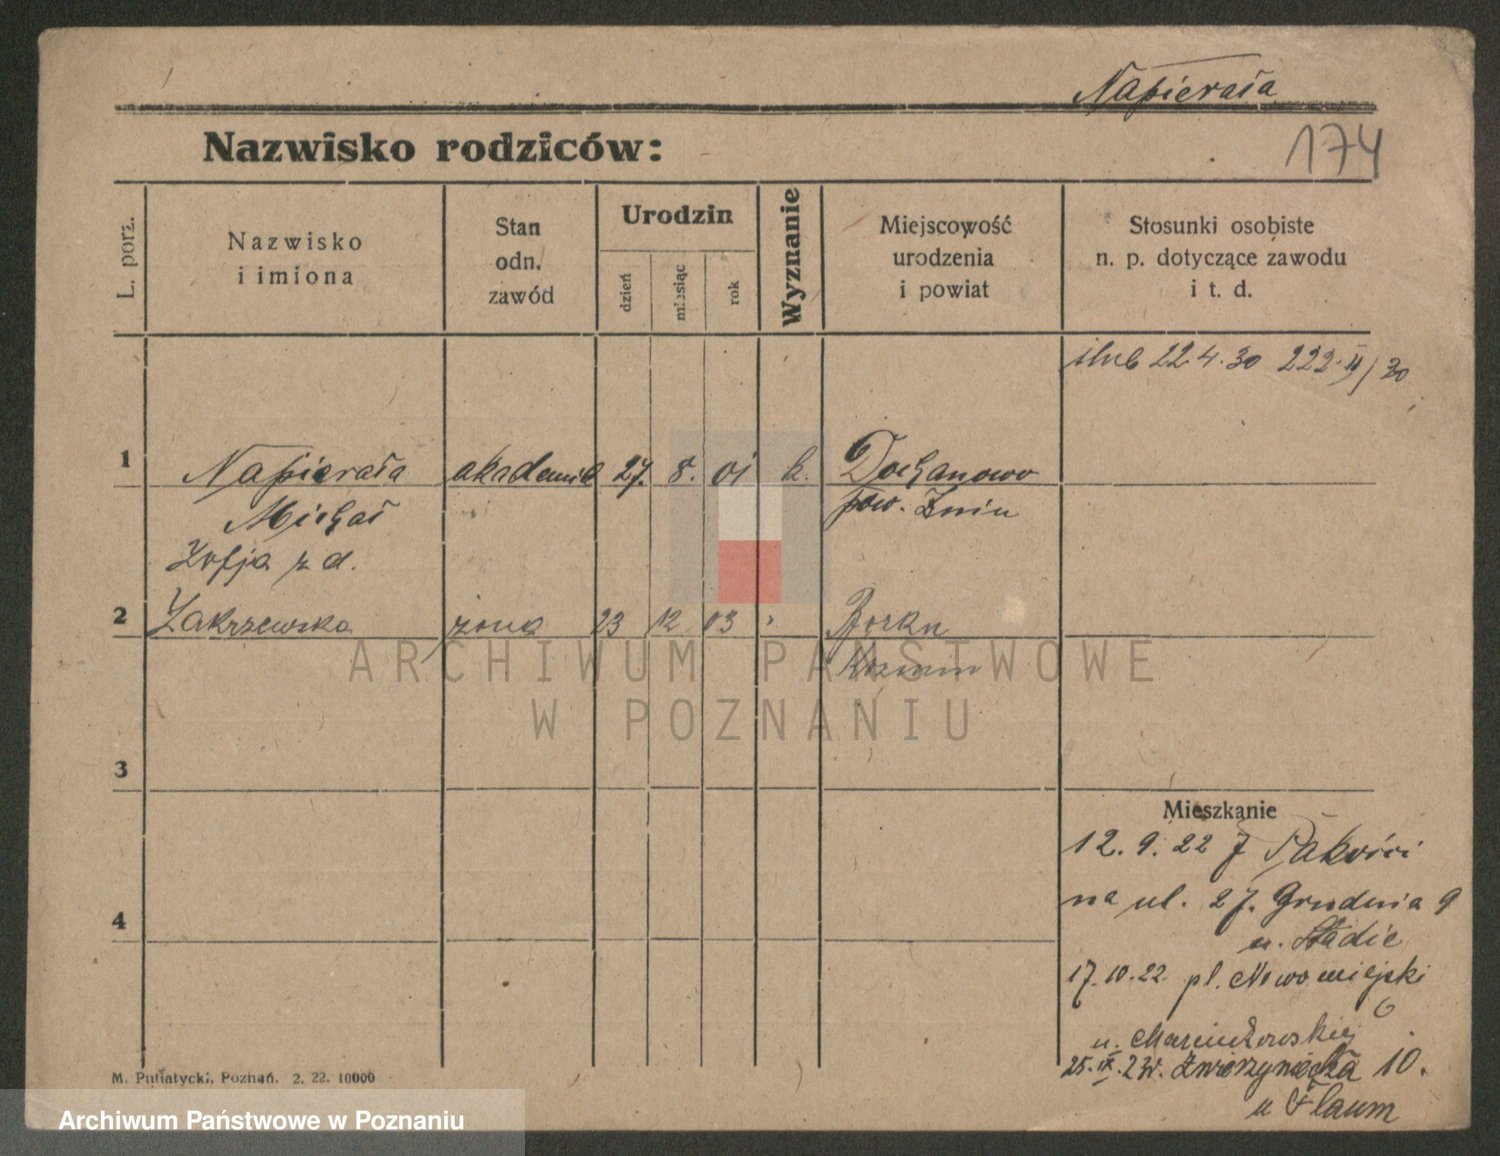 Napierała
174
Nazwisko rodziców:
L. porz.
Nazwisko
i imiona
Stan
odn.
zawód
Urodzin
dzień
miesiąc
rok
Wyznanie
Miejscowość
urodzenia
i powiat
Stosunki osobiste
n. p. dotyczące zawodu
i t. d.
ślub 22.4.30 222 II/30
1 Napierała akademik 27. 8. 01 k. Dochanowo
Michał pow. Żnin
Zofja z d.
2 Zakrzewska żona 23 12 03 Borku
3
Mieszkanie
12. 9. 22 z Pakości
na ul. 27. Grudnia 9
4
u. Stadie
17.10.22 pl. Nowomiejski
6
u. Marcinkowskiej
25. IX. 23 Zwierzyniecka 10.
u Flaum
M. Putiatycki, Poznań. 2. 22. 10000
ARCHIWUM PAŃSTWOWE
W POZNANIU
Archiwum Państwowe w Poznaniu